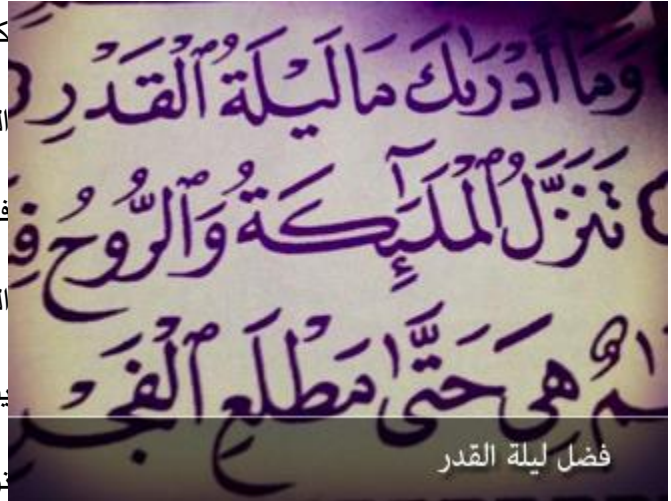 وَمَآ أَدْرَىٰكَ مَا لَيْلَةُ ٱلْقَدْرِ
تَنَزَّلُ ٱلْمَلَٰٓئِكَةُ وَٱلرُّوحُ
هِىَ حَتَّىٰ مَطْلَعِ ٱلْفَجْرِ
فضل ليلة القدر